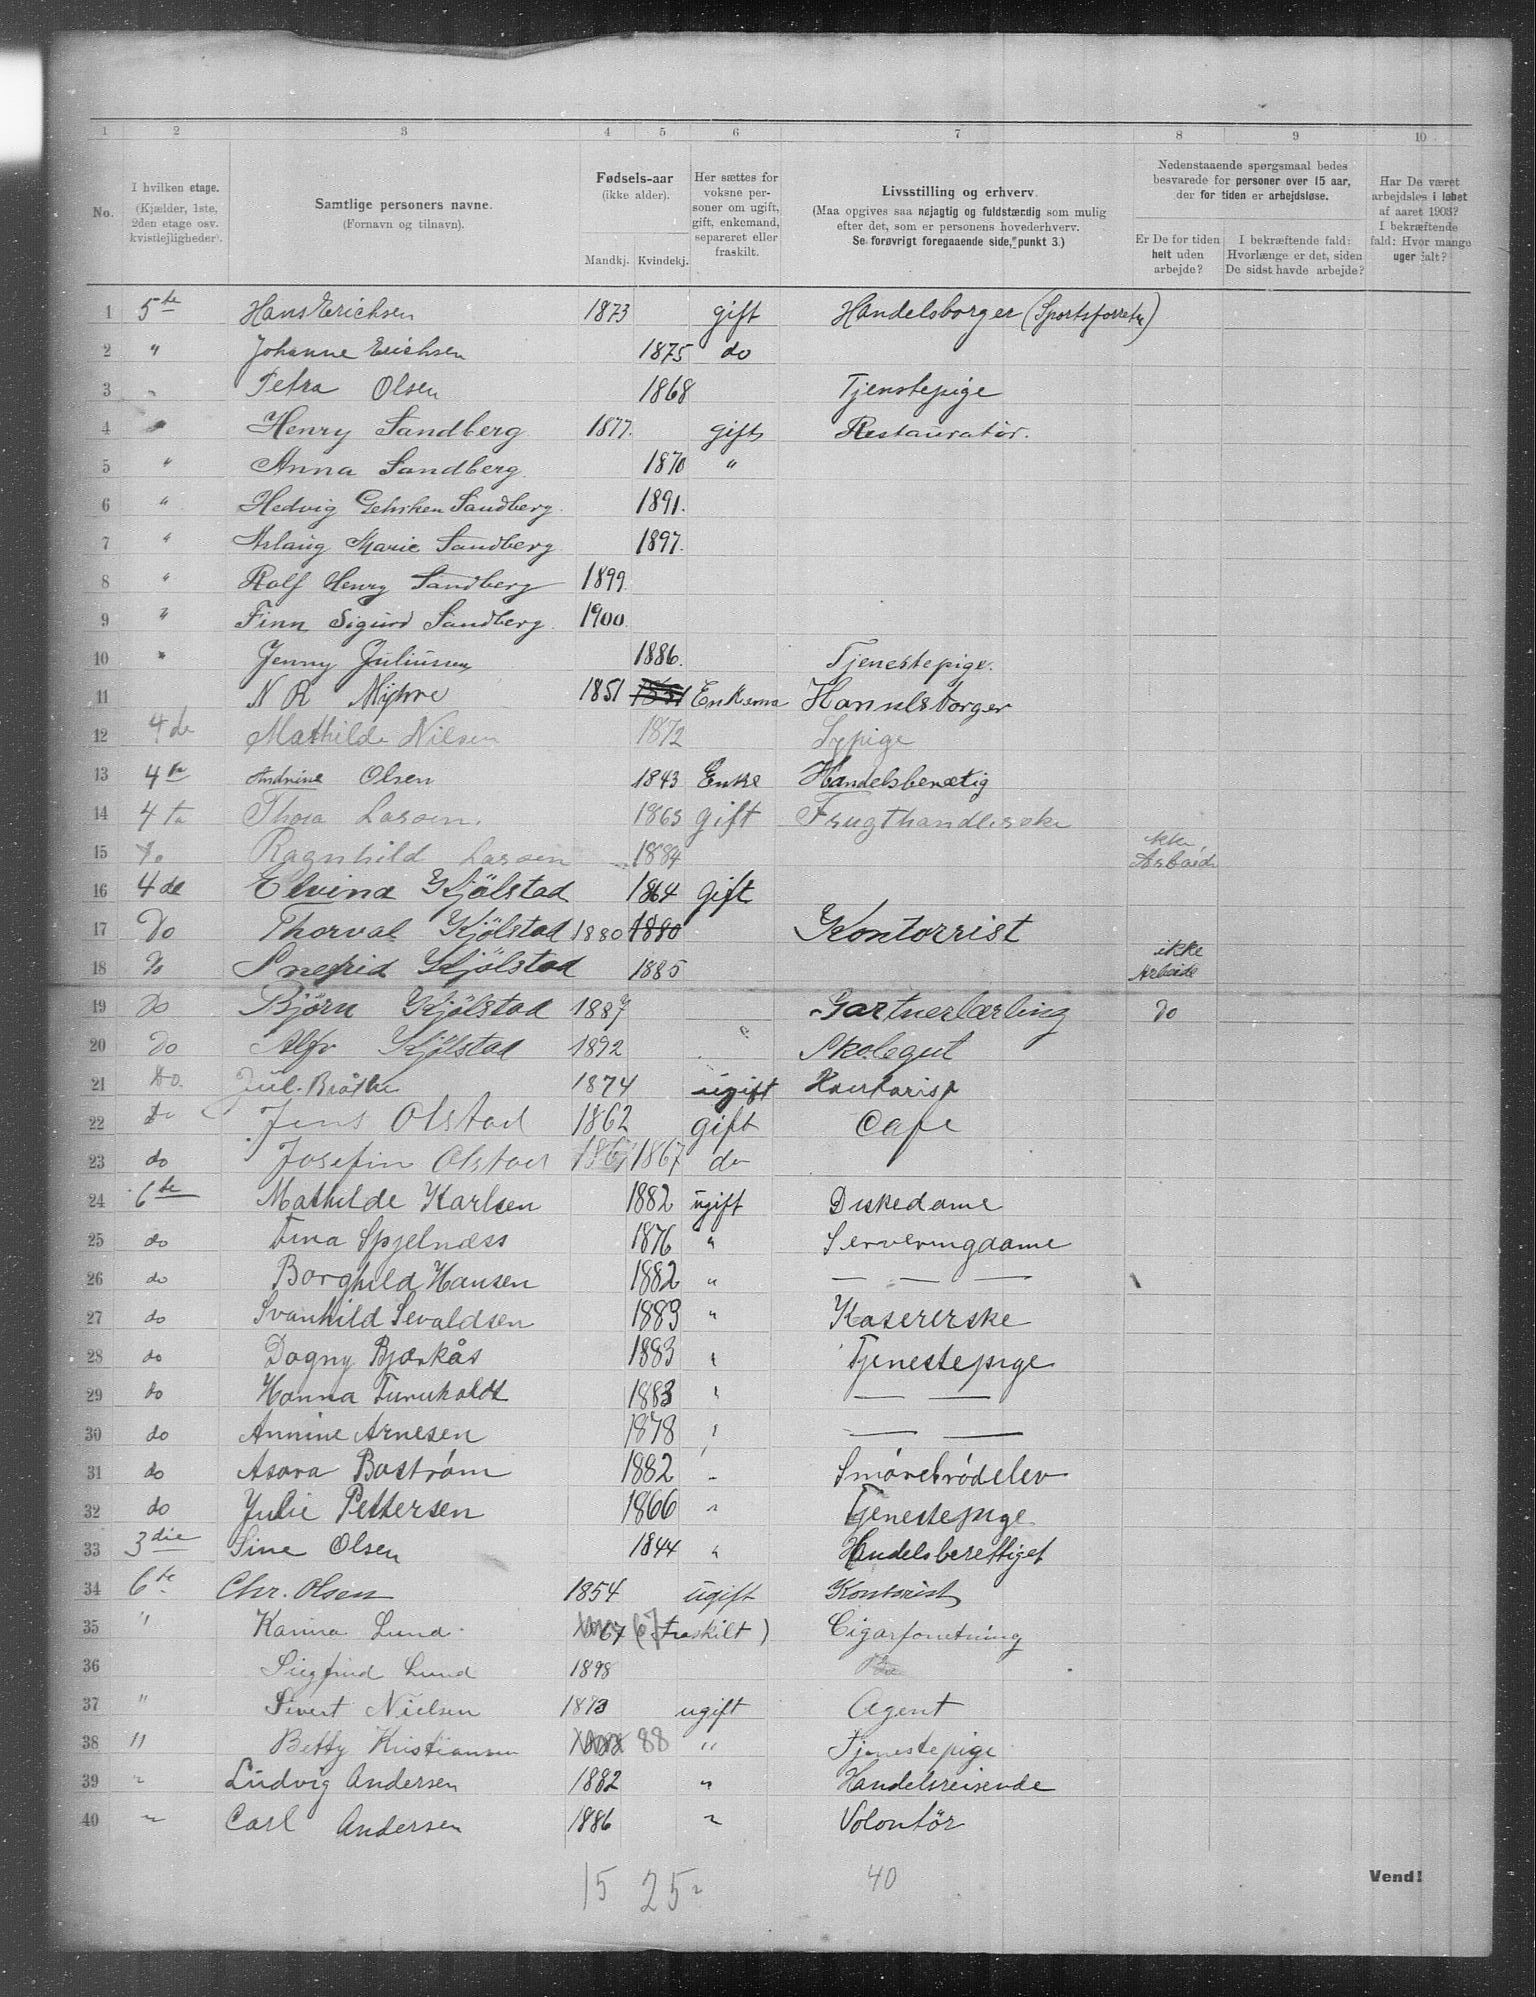 1 2 3 4 5 6 7 8 9 10
No.
I hvilken etage. (Kjælder, 1ste, 2den etage osv. kvistlejligheder).
Samtlige personers navne. (Fornavn og tilnavn).
Fødsels-aar (ikke alder). Mandkj. Kvindekj.
Her sættes for voksne personer om ugift, gift, enkemand, separeret eller fraskilt.
Livsstilling og erhverv. (Maa opgives saa nøjagtig og fuldstændig som mulig efter det, som er personens hovederhverv. Se forøvrigt foregaaende side, punkt 3.)
Nedenstaaende spørgsmaal bedes besvarede for personer over 15 aar, der for tiden er arbejdsløse.
Er De for tiden helt uden arbejde?
I bekræftende fald: Hvorlænge er det, siden De sidst havde arbejde?
Har De været arbejdsløs i løbet af aaret 1903? I bekræftende fald: Hvor mange uger ialt?
1 5te Hans Erichsen 1873 gift Handelsborger (Sportsforretn)
2 " Johanne Erichsen 1875 do
3 " Petra Olsen 1868 Tjenstepige
4 " Henry Sandberg 1877. gift Restauratør.
5 " Anna Sandberg 1870 "
6 " Hedvig Sandberg. 1891.
7 " Aslaug Marie Sandberg 1897.
8 " Rolf Henry Sandberg 1899
9 " Finn Sigurd Sandberg 1900
10 " Jenny Juliussen 1886. Tjenestepige.
11 N R Myhre 1851 1851 Enkema Hannelsborger
12 4de Mathilde Nilsen 1872 Sypige
13 4de Andrine Olsen 1843 Enke Handelsberætig
14 4ta Thora Larsen. 1865 gift Frugthandlerske
15 Do Ragnhild Larsen 1884 ikke Arbeide
16 4de Elvina Kjölstad 1864 gift
17 Do Thorval Kjölstad 1880 1880 Kontorrist
18 Do Snefrid Kjölstad 1885 ikke Arbeide
19 Do Björn Kjölstad 1887 Gartnerlærling Do
20 Do Alfr Kjölstad 1892 Skolegut
21 Do. Jul. Bråthe 1874 ugift Kontorist
22 Do Jens Olstad 1862 gift Cafe
23 do Josefin Olstad 1867 1867 do
24 6te Mathilde Karlsen 1882 ugift Diskedame
25 do Tina Spjelnæss 1876 " Serveringdame
26 do Borghild Hansen 1882 " — — —
27 do Svanhild Sevaldsen 1883 " Kasererske
28 do Dagny Bjærkås 1883 " Tjenestepige
29 do Hanna Furuholdt 1883 " — —
30 do Annine Arnesen 1878 " — —
31 do Asora Boström 1882 " Smörebrödelev
32 do Julie Pettersen 1866 " Tjenestepige
33 3die Sine Olsen 1844 " Handelsberettiget
34 6te Chr. Olsen 1854 ugift Kontorist
35 " Kanna Lund 67 (67 fraskilt) Cigarforretning
36 Siegfried Lund 1898
37 " Sivert Nielsen 1873 ugift Agent
38 " Betty Kristiansen 1888 88 " Tjenestepige
39 " Ludvig Andersen 1882 " Handelsreisende
40 " Carl Andersen 1886 " Volontör
15 25 40
Vend!